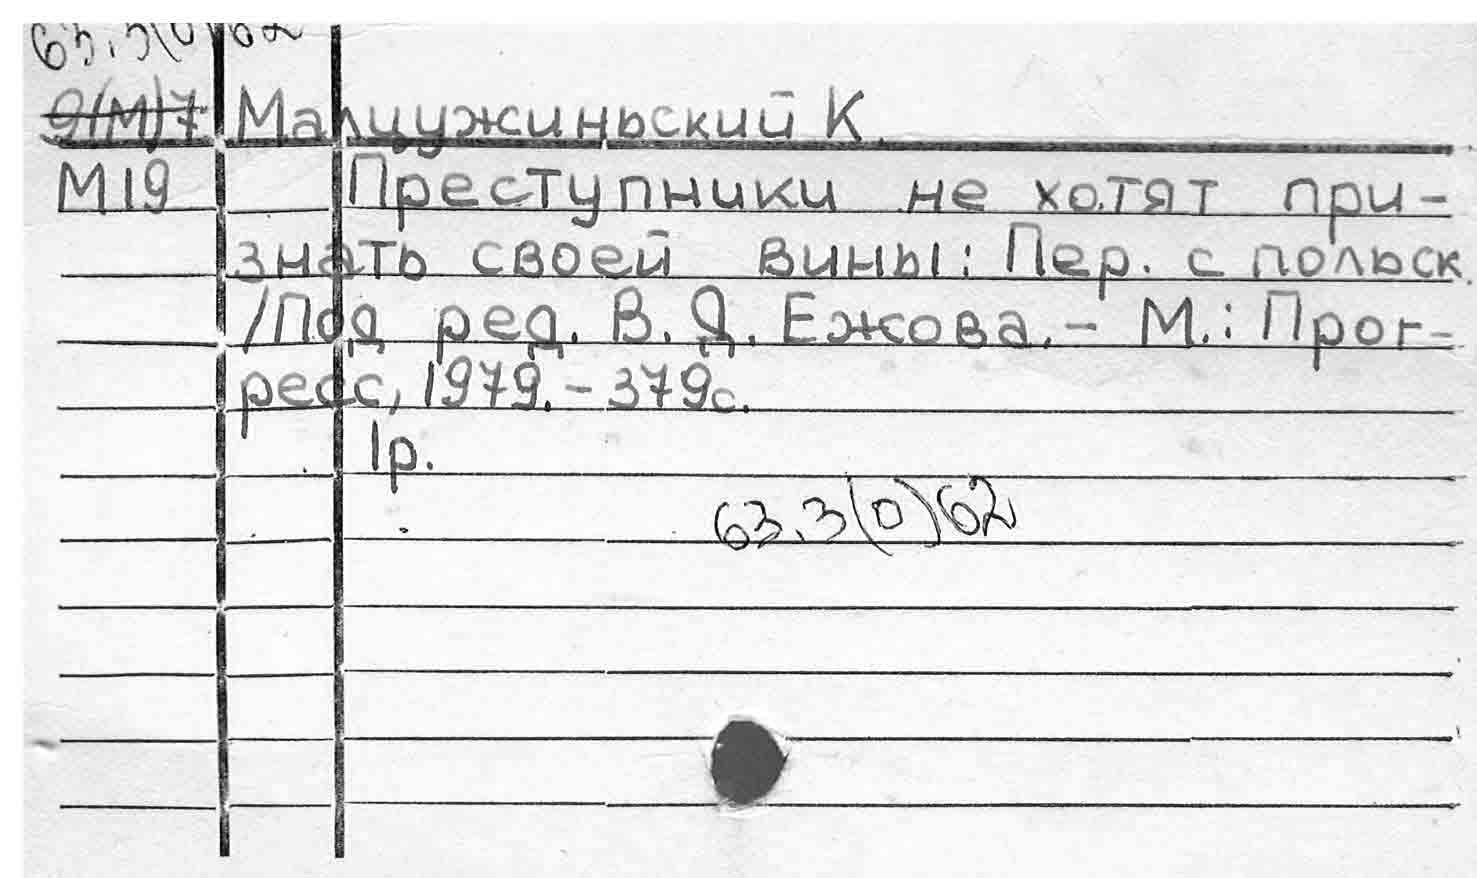 63.3(0)62
9(М)7 Малцужиньский К.
М19 Преступники не хотят при-
знать своей вины: Пер. с польск.
/Под ред. В. Д. Ежова. - М.: Прог-
ресс, 1979. - 379с.
1р.
63.3(0)62